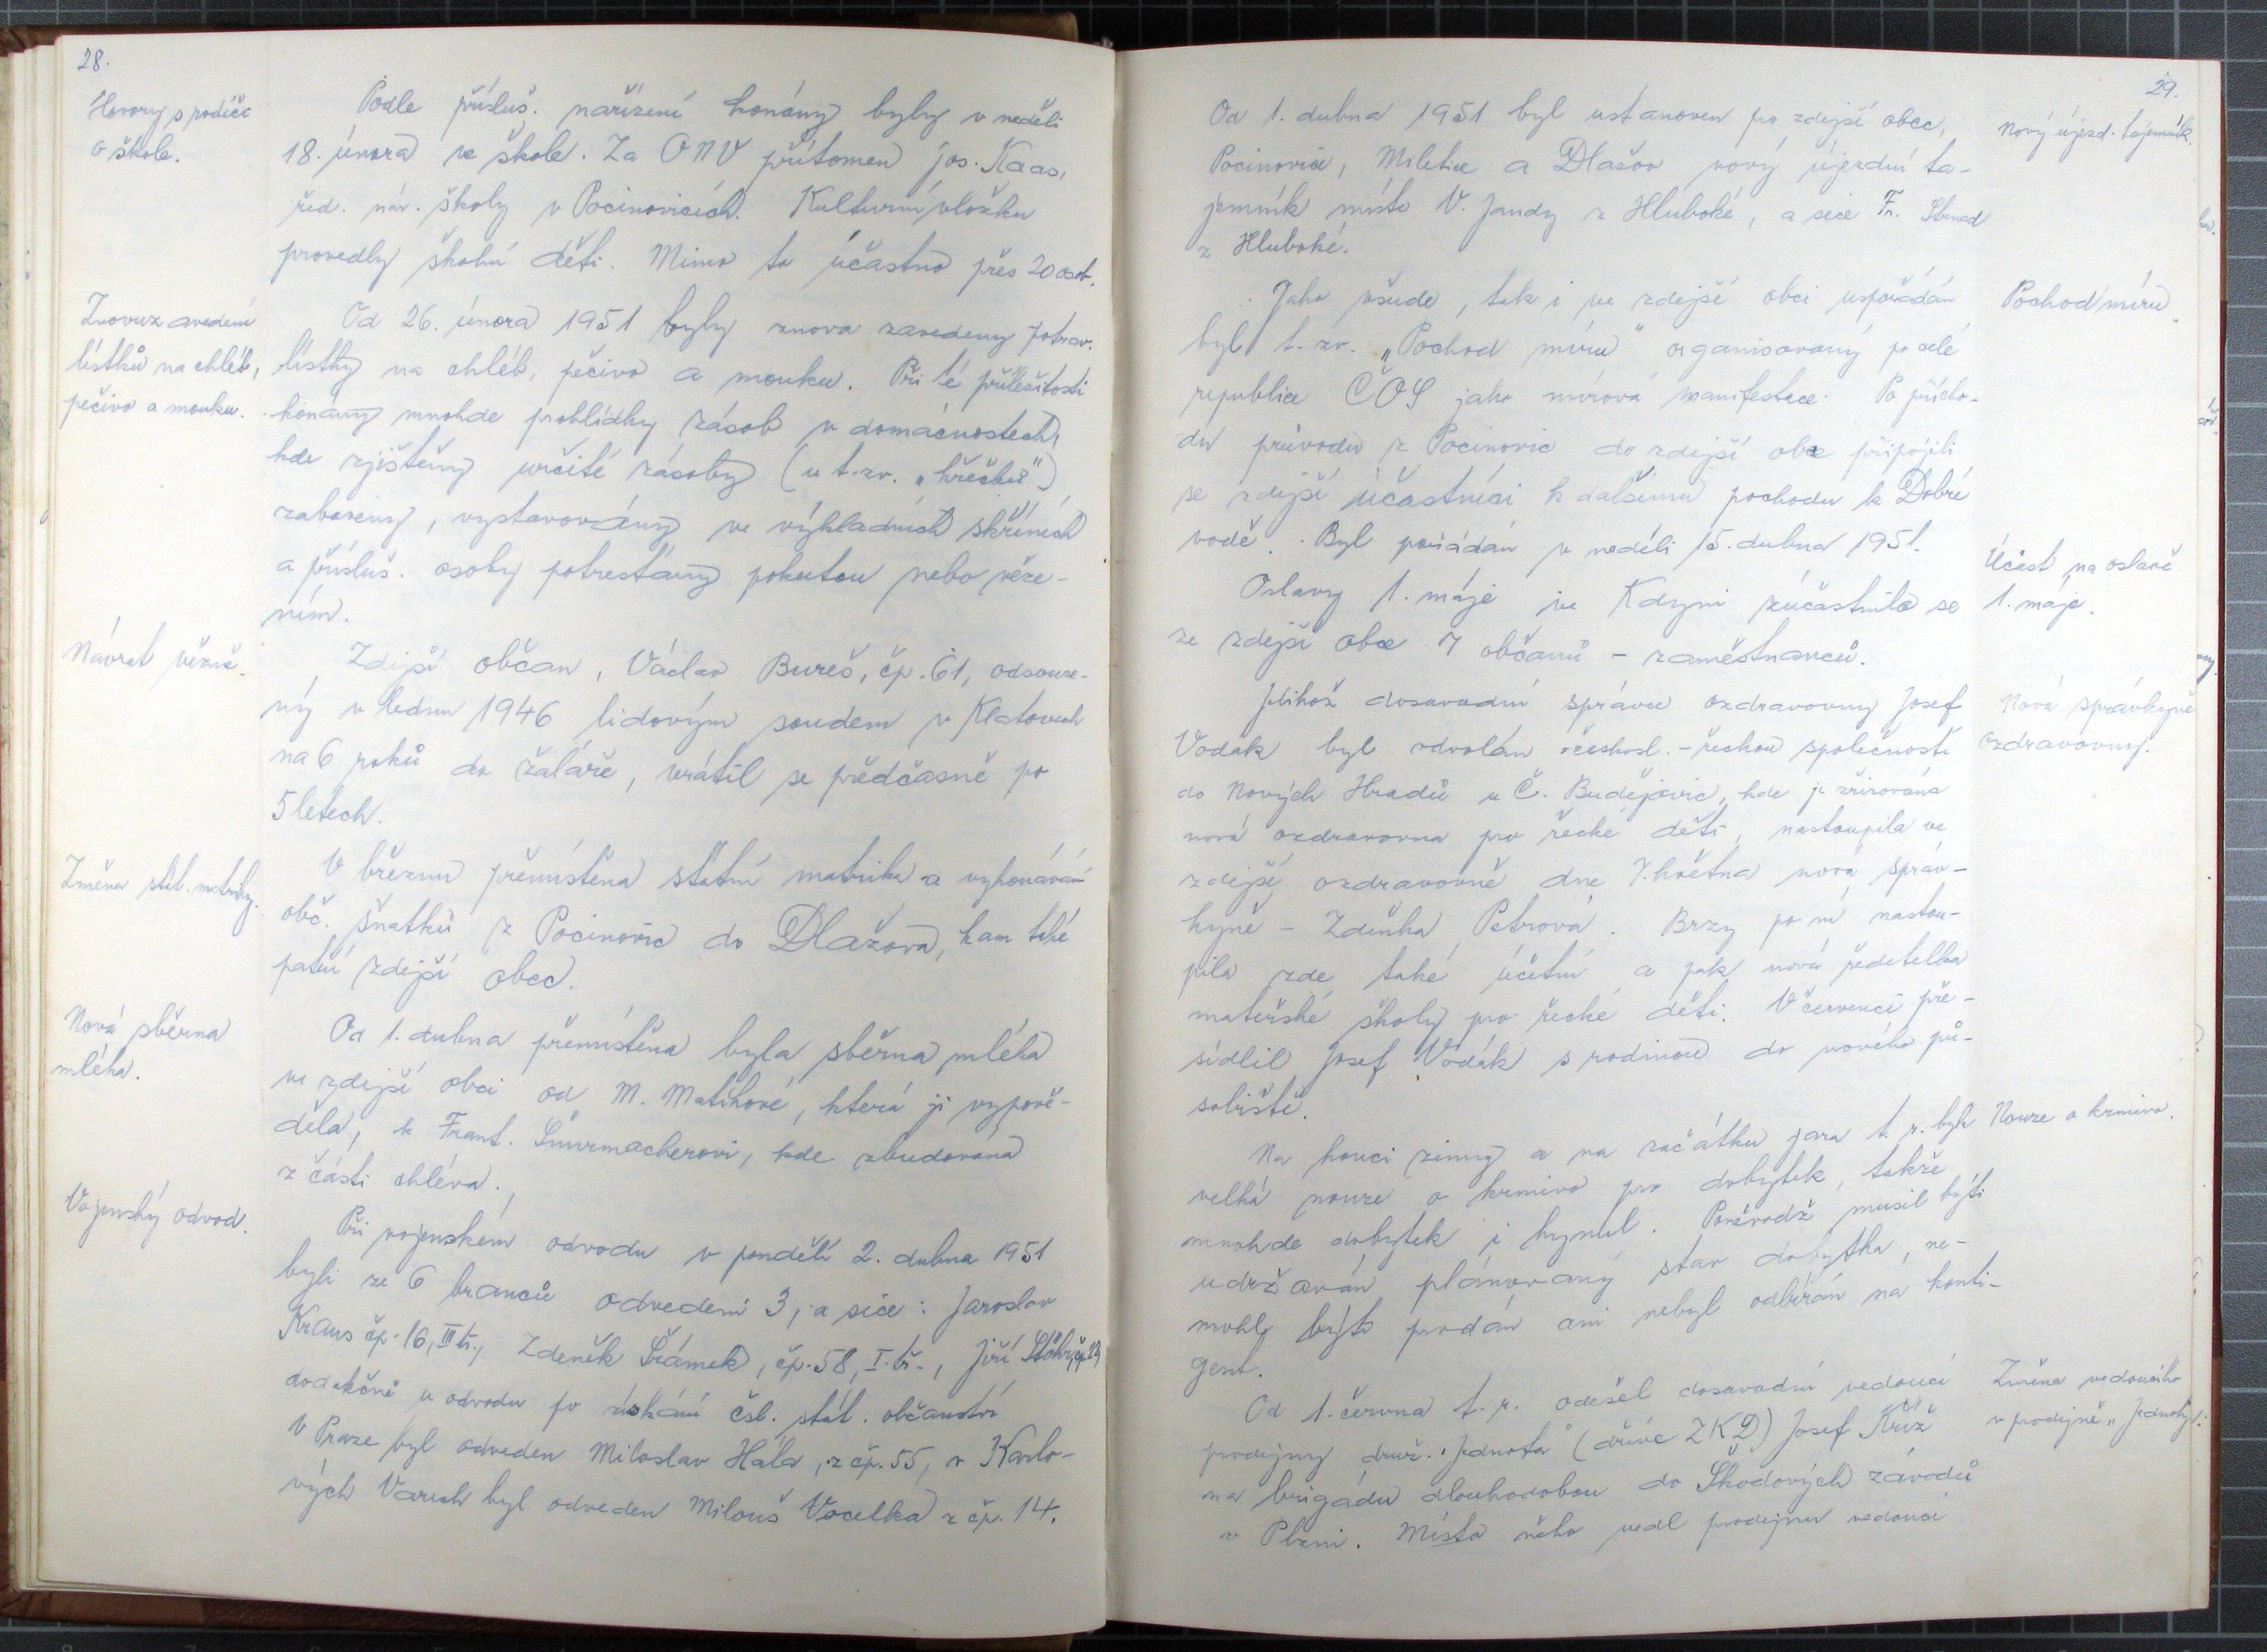 28.
Hovory s rodiči
o škole.
Podle přísluš. nařízení konány byly v neděli
18. února ve škole. Za ONV přítomen Jos. Kaas,
řed. nár. školy v Pocinovicích. Kulturní vložku
provedly školní děti. Mimo to účastno přes 20 osob.
Znovuzavedení
lístků na chléb,
pečivo a mouku.
Od 26. února 1951 byly znova zavedeny potrav.
lístky na chléb, pečivo a mouku. Při té příležitosti
konány mnohde prohlídky zásob v domácnostech,
kde zjištěny určité zásoby (u t. zv. „křečků")
zabaveny, vystavovány ve výkladních skříních
a přísluš. osoby potrestány pokutou nebo věze-
ním.
Návrat vězně.
Zdejší občan, Václav Bureš, čp. 61, odsouze-
ný v lednu 1946 lidovým soudem v Klatovech
na 6 roků do žaláře, vrátil se předčasně po
5 letech.
Změna stát. matriky.
V březnu přemístěna státní matrika a vykonávání
obč. sňatků z Pocinovic do Dlažova, kam také
patří zdejší obec.
Nová sběrna
mléka.
Od 1. dubna přemístěna byla sběrna mléka
ve zdejší obci od M. Matíkové, která ji vypově-
děla, k Frant. Šnurmacherovi, kde zbudována
z části chléva.
Vojenský odvod.
Při vojenském odvodu v pondělí 2. dubna 1951
byli ze 6 branců odvedeni 3, a sice: Jaroslav
Kraus čp. 16, III tř., Zdeněk Šrámek, čp. 58, I. tř., Jiří Stöhr, čp.
dodatečně u odvodu po získání čsl. stát. občanství
V Praze byl odveden Miloslav Hála, z čp. 55, v Karlo-
vých Varech byl odveden Milouš Vocelka z čp. 14.
29.
Od 1. dubna 1951 byl ustanoven pro zdejší obec,
Pocinovice, Miletice a Dlažov nový újezdní ta-
jemník místo V. Jandy z Hluboké, a sice Fr. Strnad
z Hluboké.
Nový újezd. tajemník.
Jako všude, tak i ve zdejší obci uspořádán
byl t. zv. „Pochod míru" organisovaný po celé
republice ČOS jako mírová manifestace. Po přícho-
du průvodu z Pocinovic do zdejší obce připojili
se zdejší účastníci k dalšímu pochodu k Dobré
vodě. Byl pořádán v neděli 15. dubna 1951.
Pochod míru.
Oslavy 1. máje ve Kdyni zúčastnilo se
ze zdejší obce 7 občanů – zaměstnanců.
Účast na oslavě
1. máje.
Jelikož dosavadní správce ozdravovny Josef
Vodák byl odvolán českosl. - řeckou společností
do Nových Hradů u Č. Budějovic, kde je zřizována
nová ozdravovna pro řecké děti, nastoupila ve
zdejší ozdravovně dne 7. května nová správ-
kyně – Zdeňka Petrová. Brzy po ní nastou-
pila zde také účetní a pak nová ředitelka
mateřské školy pro řecké děti. V červenci pře-
sídlil Josef Vodák s rodinou do nového pů-
sobiště.
Nová správkyně
ozdravovny.
Na konci zimy a na začátku jara t. r. byla
velká nouze o krmivo pro dobytek, takže
mnohde dobytek i hynul. Poněvadž musil býti
udržován plánovaný stav dobytka, ne-
mohl býti prodán ani nebyl odbírán na konti-
gent.
Nouze o krmivo.
Od 1. června t. r. odešel dosavadní vedoucí
prodejny druž. „Jednota" (dříve ZKD) Josef Kříž
na brigádu dlouhodobou do Škodových závodů
v Plzni. Místo něho vedl prodejnu vedoucí
Změna vedoucího
v prodejně „Jednoty".